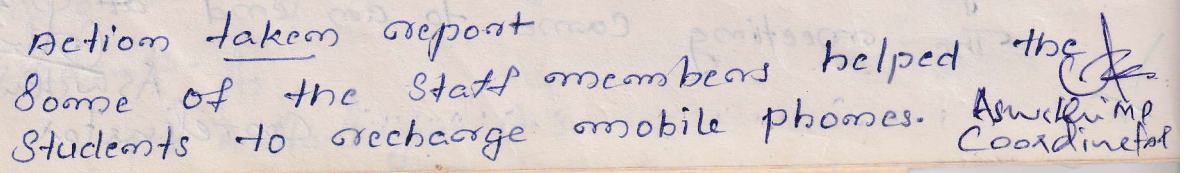 Action taken report
Some of the Staff members helped the
Students to recharge mobile phones.
Aswathi MP
Coordinator